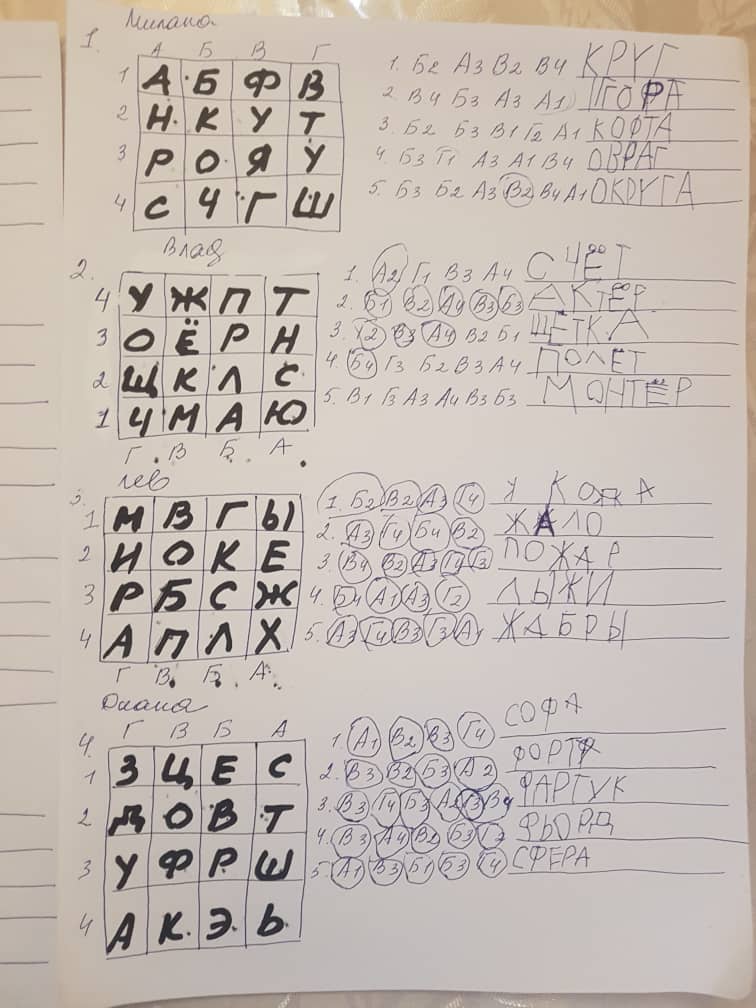 Милана
1.
А Б В Г
1 А Б Ф В 1. Б2 А3 В2 В4 КРУГ
2 Н К У Т 2. В4 Б3 А3 А1 ГОРА
3 Р О Я У 3. Б2 Б3 В1 Г2 А1 КОФТА
4 С Ч Г Ш 4. Б3 Г1 А3 А1 В4 ОВРАГ
5. Б3 Б2 А3 В2 В4 А1 ОКРУГА
Влад
2.
4 У Ж П Т 1. А2 Г1 В3 А4 СЧЁТ
3 О Ё Р Н 2. Б1 В2 А4 В3 Б3 АКТЁР
2 Щ К Л С 3. Г2 В3 А4 В2 Б1 ЩЁТКА
1 Ч М А Ю 4. Б4 Г3 Б2 В3 А4 ПОЛЁТ
Г В Б А 5. В1 Г3 А3 А4 В3 Б3 МОНТЁР
Лев
3.
1 М В Г Ы 1. Б2 В2 А3 Г4 КОЖА
2 И О К Е 2. А3 Г4 Б4 В2 ЖАЛО
3 Р Б С Ж 3. В4 В2 А3 Г4 Г3 ПОЖАР
4 А П Л Х 4. Б4 А1 А3 Г2 ЛЫЖИ
Г В Б А 5. А3 Г4 В3 Г3 А1 ЖАБРЫ
Диана
4.
Г В Б А
1 З Ц Е С 1. А1 В2 В3 Г4 СОФА
2 Д О В Т 2. В3 В2 Б3 А2 ФОРТ
3 У Ф Р Ш 3. В3 Г4 Б3 А2 Г3 В4 ФАРТУК
4 А К Э Ь 4. В3 А4 В2 Б3 Г2 ФЬОРД
5. А1 В3 Б1 Б3 Г4 СФЕРА